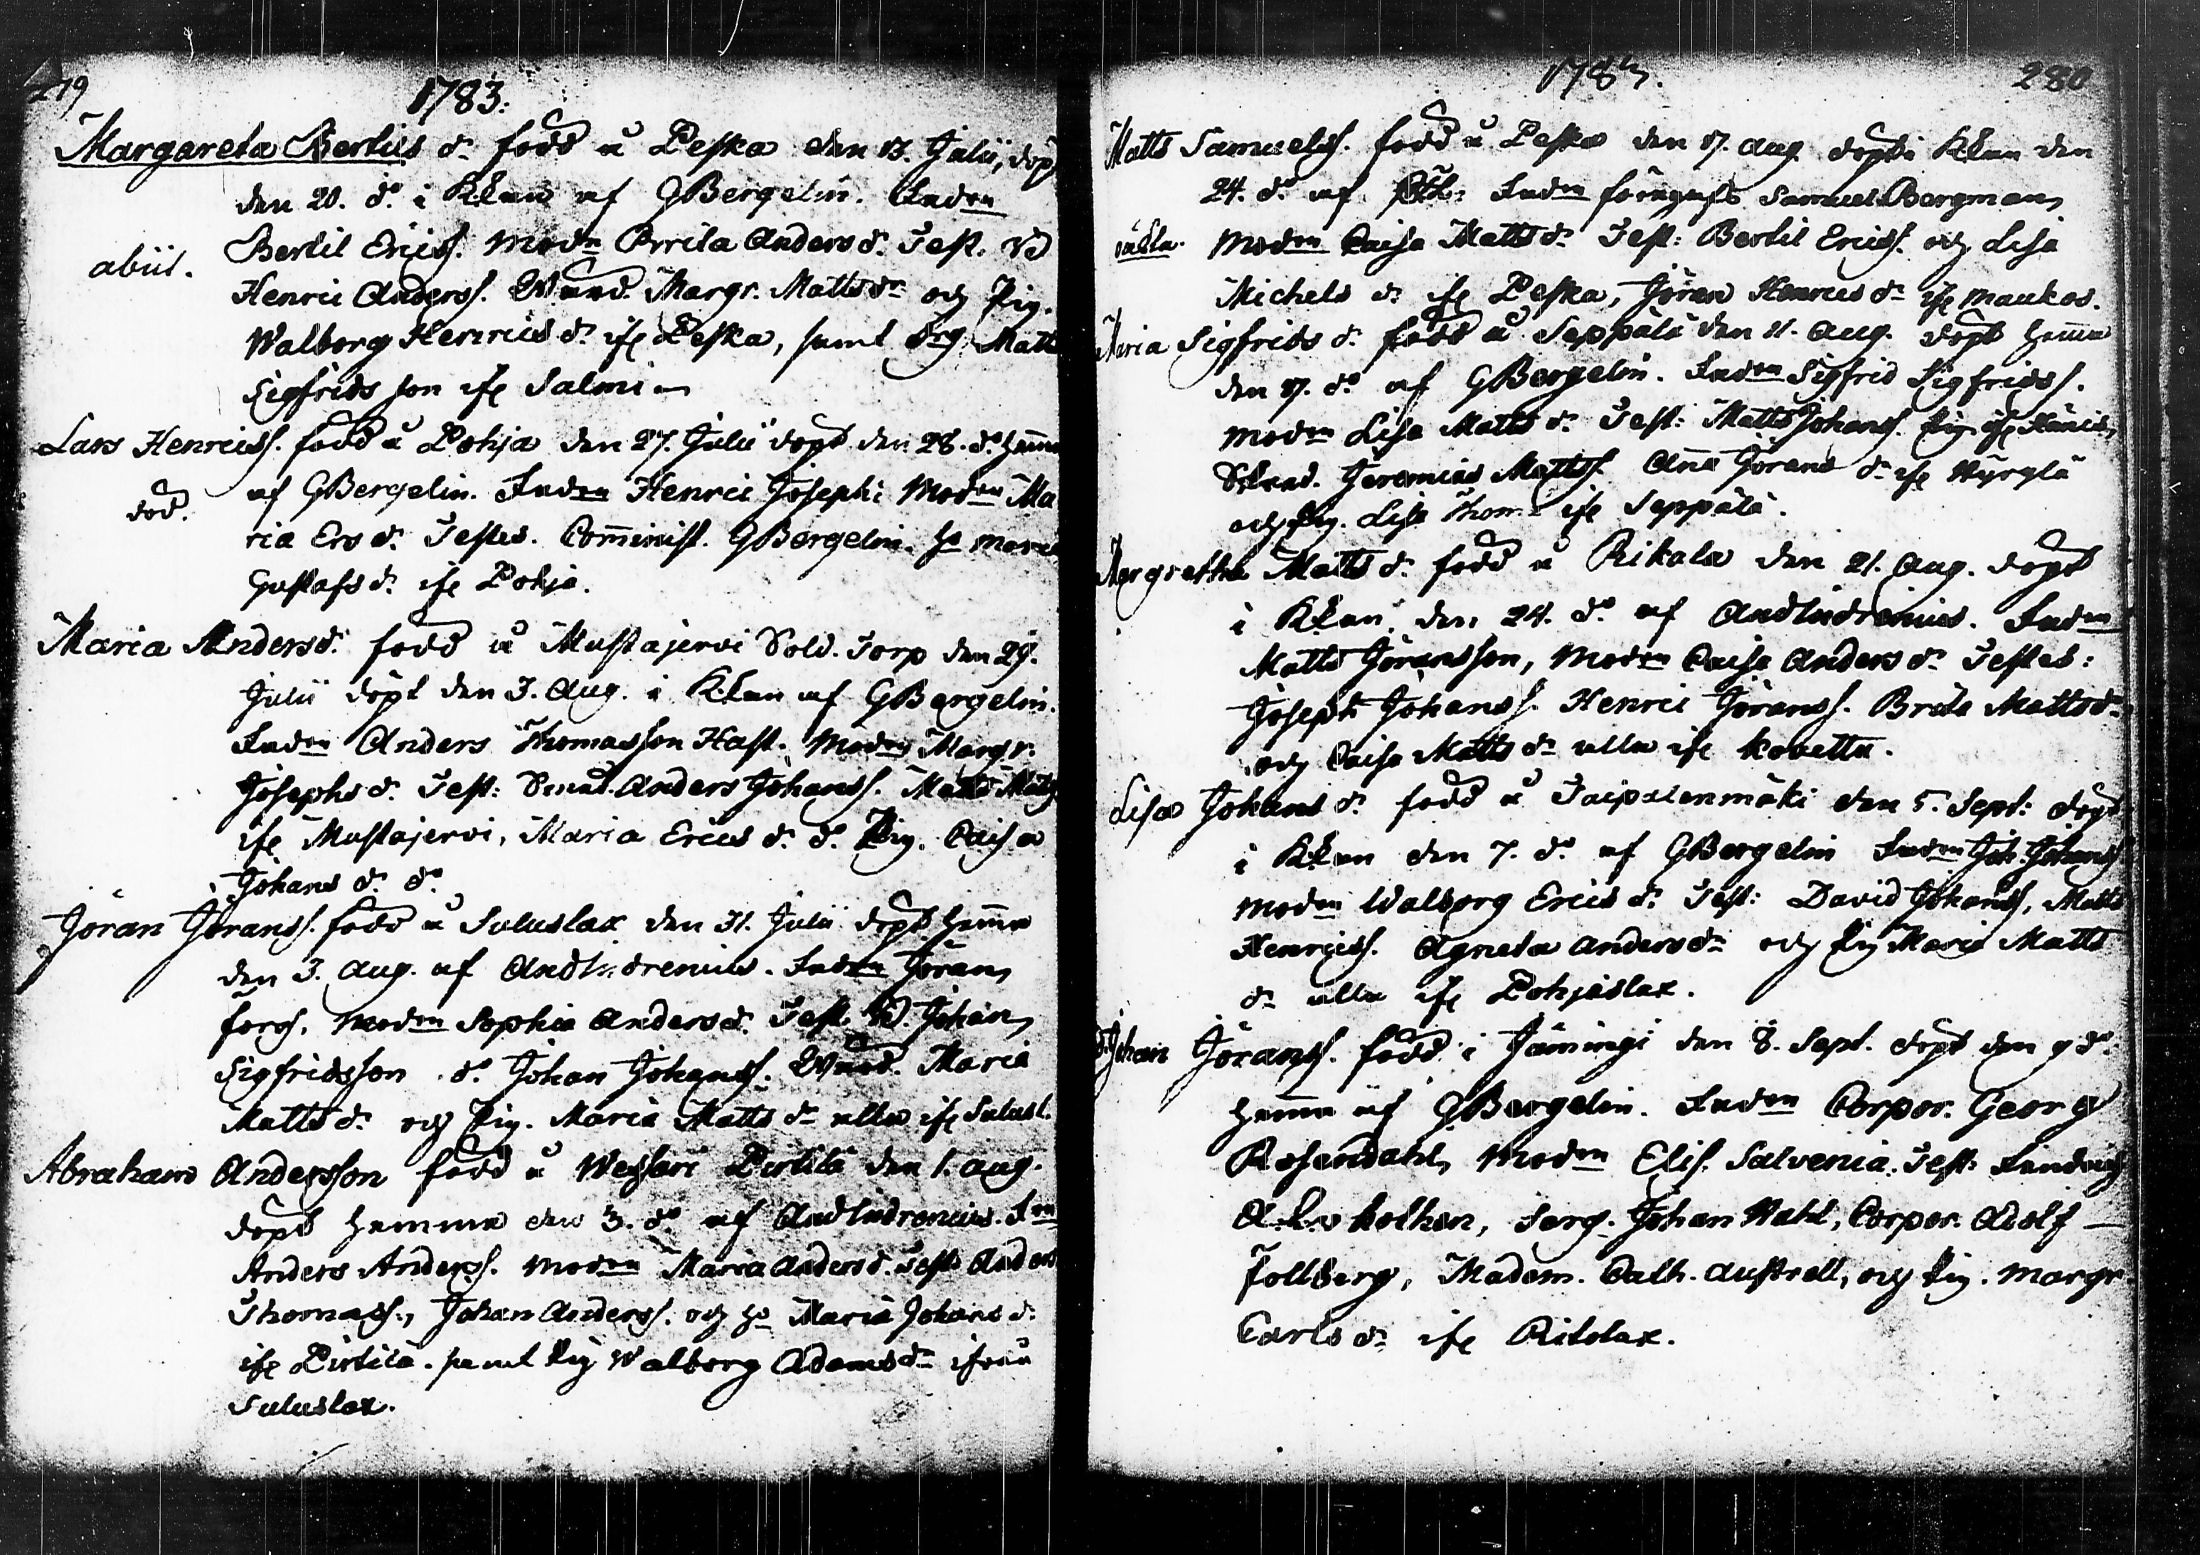 279
1783.
Margareta Bertils dr. född å Peska den 13. Julii, döpt
den 20. do i Kkan af GBergelin. Fadren
Bertil Ericss. Modrn Brita Anders dr. Test. Bd
abiit.
Henric Anderss. Margr. Matts dr och Pig.
Walborg Henrics dr ifr Peska, samt Drg Matts
Sigfrids son ifr Salmi
Lars Henricss. född å Pohja den 27. Julii döpt den 28. do hemma
död.
af GBergelin. Fadren Henric Josephi Modren Ma
ria Ers dr. Testes. Comminist. GBergelin. Ho Maria
Gustafs dr ifr Pohja.
Maria Anders dr. född å Mustajervi Sold. Torp den 29.
Julii döpt den 3. Aug. i Kkan af GBergelin.
Fadren Anders Thomasson Hast. Modren Margr.
Josephs dr. Test: Anders Johanss. Matts Matts
ifr Mustajervi, Maria Erics dr. do. Pig. Caisa
Johans dr. do
Jöran Jöranss. född å Suluslax den 31. Julii döpt hemma
den 3. Aug. af AndLindrenius. Fadren Jöran
Modren Sophia Anders dr. Test. Bd. Johan
Sigfridsson do. Johan Johanss. Maria
Matts dr. och Pig. Maria Matts dr alla ifr Sulusl.
Abraham Andersson född å Pirtilä den 1. Aug.
döpt hemma den 3. do af AndLindrenius. Fren
Anders Anderss. Modren Maria Anders dr. Test: Anders
Thomass., Johan Anderss. och Ho Maria Johans dr.
ifr Pirtilä. samt Pig Walborg Adams dr ifrån
Suluslax.
1783.
280
Matts Samuelss. född å Peska den 17. Aug. döpt i Kkan den
24. do af Fadren Samuel Bergman,
Modren Caisa Matts dr Test: Bertil Ericss. och Lisa
Michels dr ifr Peska, Jöran Henrics dr ifr Maukos.
Maria Sigfrids dr född å Seppälä den 11. Aug. döpt hemma
den 17. do af GBergelin. Fadren Sigfrid Sigfridss.
Modren Lisa Matts dr Test: Matts Johanss.
Jeremias Mattss. Ana Jörans dr ifr Hyrylä
och Pig. Lisa Thom. ifr Seppälä.
Margretha Matts dr. född å Rikala den 21. Aug. döpt
i Kkan den 24. do af AndLindrenius. Fadren
Matts Jöransson, Modren Caisa Anders dr Testes:
Joseph Johanss. Henric Jöranss. Brita Matts dr
och Caisa Matts dr alla ifr Kovetta.
Lisa Johans dr född å Taipalenmäki den 5. Sept: döpt
i Kkan den 7. do af GBergelin Fadren Joh. Johanss
Modren Walborg Erics dr. Test: David Johanss, Matts
Henricss. Agneta Anders dr och Pig Maria Matts
dr alla ifr Pohjaslax.
Johan Jöranss. född i Jämingi den 8. Sept. döpt den 9 do.
hemma af GBergelin. Fadren Corpor. Georg
Rosendahl, Modren Elis. Salvenia. Test:
Serg. Johan Wahl, Corpor. Adolf
Follberg, Madem. Cath. Austrell, och Pig. Margr.
Carls dr ifr Ritolax.